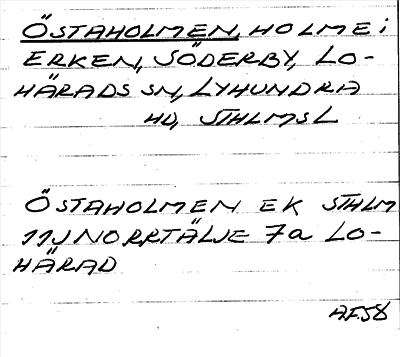 ÖSTAHOLMEN, HOLME i
ERKEN, SÖDERBY, LO-
HÄRADS SN, LYHUNDRA
HD, STHLMS L
ÖSTAHOLMEN EK STHLM
11J NORRTÄLJE 7a LO-
HÄRAD
A.F.58